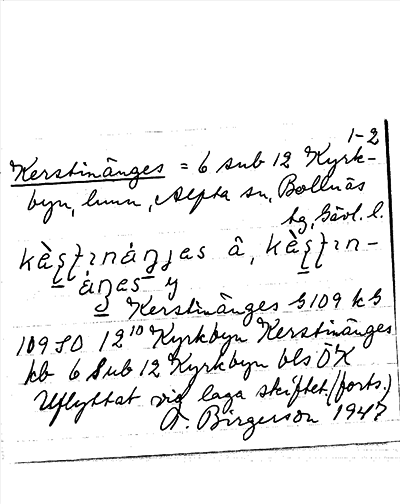 1-2
Kerstinänges = 6 sub 12 Kyrk-
byn, hmn, Alfta sn, Bollnäs
hg, Gävl. l.
kὰʂʈɪnáŋɟas â, kὰʂʈɪn-
áŋas y
Kerstinänges G109 kG
109 SO 12¹⁰ Kyrkbyn Kerstinänges
kb 6 Sub 12 Kyrkbyn bls ÖK
Utflyttat vid laga skiftet. (forts.)
A. Birgerson 1947